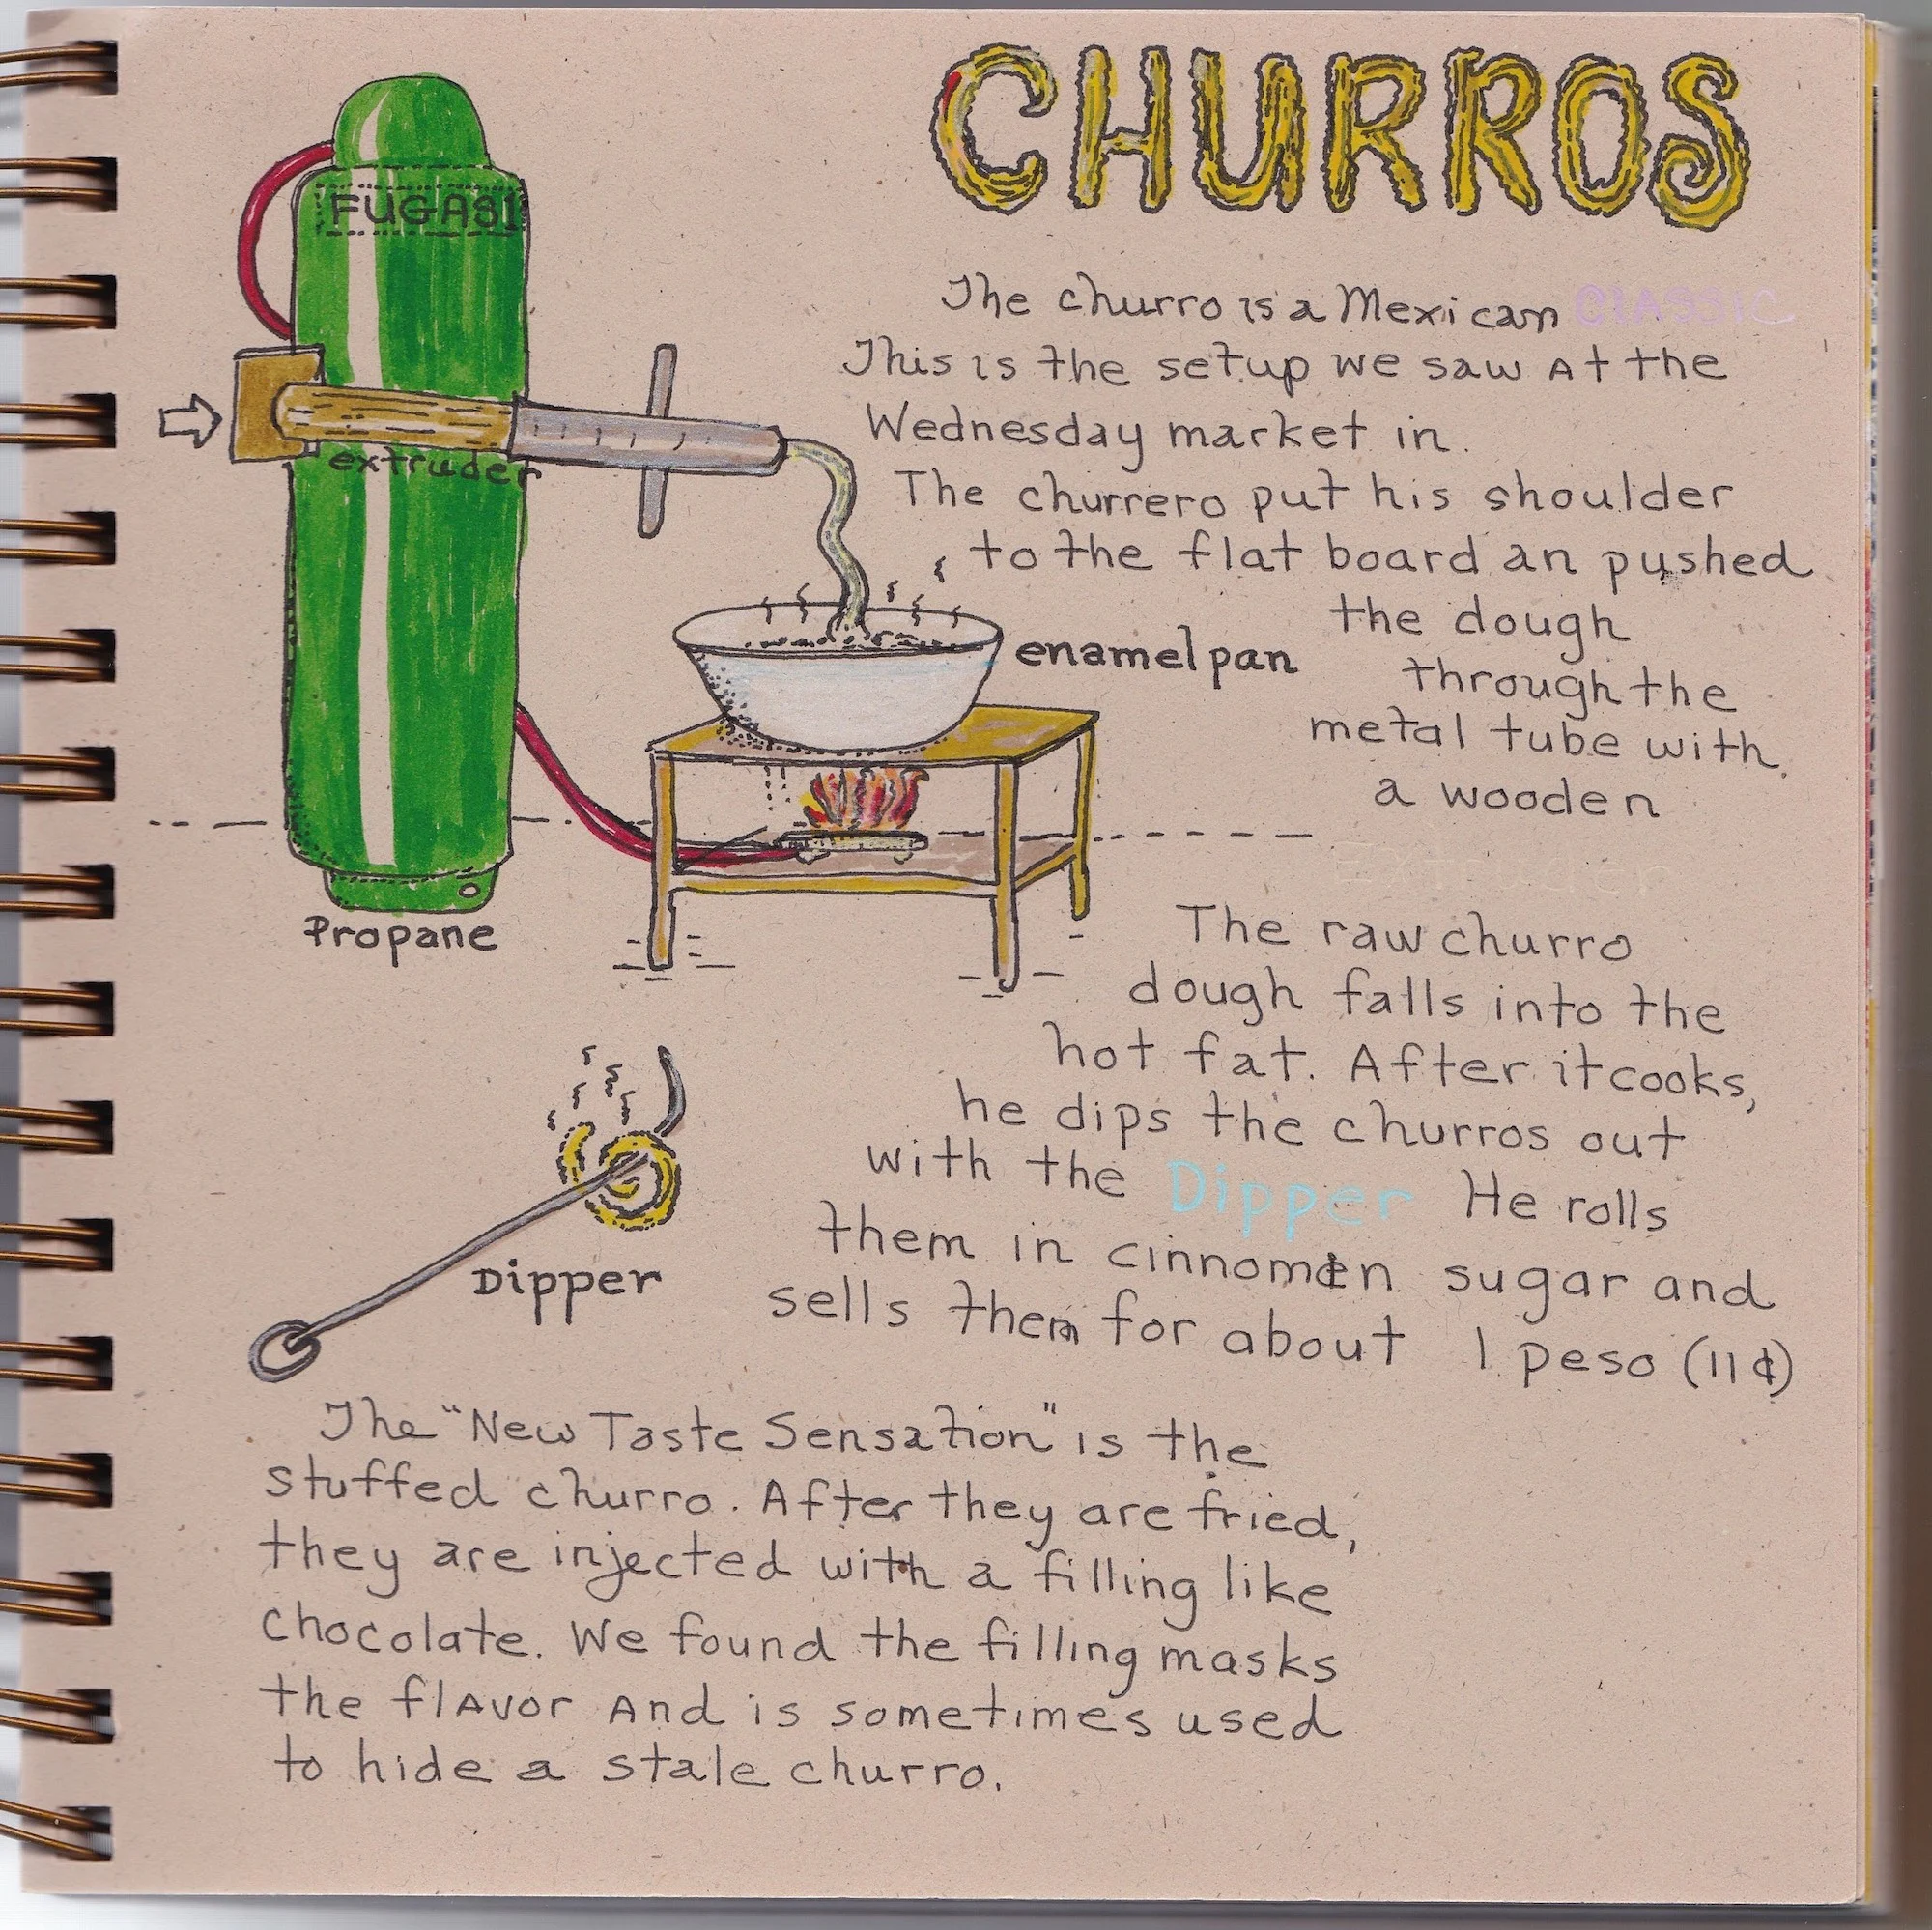 CHURROS
FUGAS1
The churro is a Mexican CLASSIC
This is the setup we saw At the
Wednesday market in.
The churrero put his shoulder
to the flat board an pushed
the dough
through the
metal tube with
a wooden
Extruder
extruder
enamel pan
Propane
The raw churro
dough falls into the
hot fat. After it cooks,
he dips the churros out
with the Dipper He rolls
them in cinnomen sugar and
sells them for about 1 peso (11¢)
Dipper
The "New Taste Sensation" is the
stuffed churro. After they are fried,
they are injected with a filling like
chocolate. We found the filling masks
the flAvor And is sometimes used
to hide a stale churro.